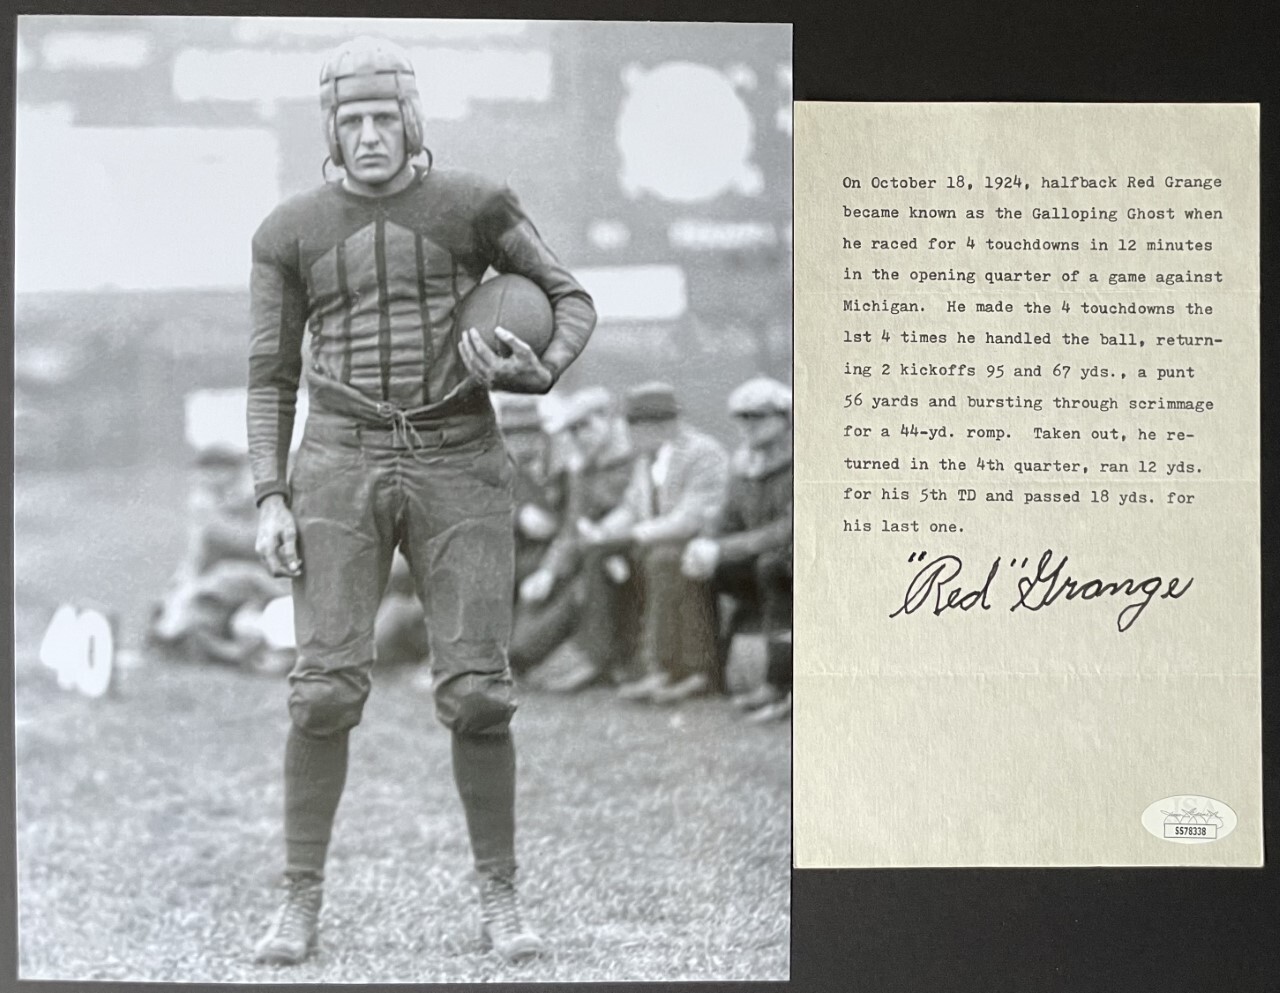 On October 18, 1924, halfback Red Grange
became known as the Galloping Ghost when
he raced for 4 touchdowns in 12 minutes
in the opening quarter of a game against
Michigan. He made the 4 touchdowns the
1st 4 times he handled the ball, return-
ing 2 kickoffs 95 and 67 yds., a punt
56 yards and bursting through scrimmage
for a 44-yd. romp. Taken out, he re-
turned in the 4th quarter, ran 12 yds.
for his 5th TD and passed 18 yds. for
his last one.
"Red" Grange
JSA
SS78338